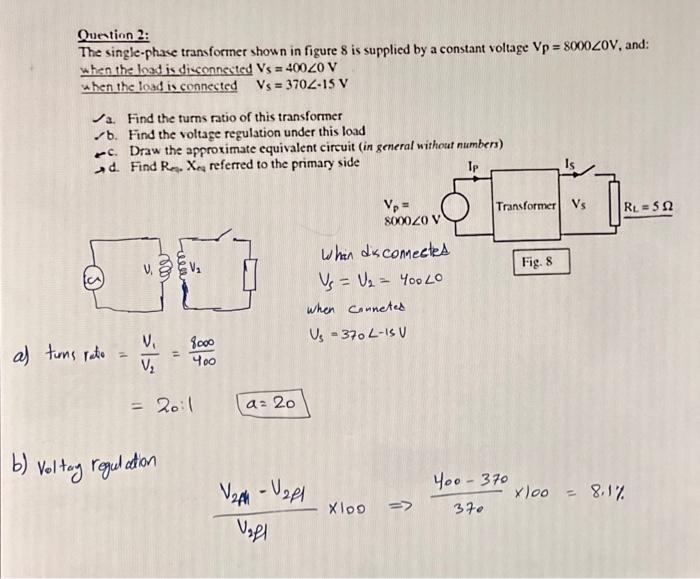 Question 2:
The single-phase transformer shown in figure 8 is supplied by a constant voltage Vp = 8000∠0V, and:
when the load is disconnected Vs = 400∠0 V
when the load is connected Vs = 370∠-15 V
✓a. Find the turns ratio of this transformer
✓b. Find the voltage regulation under this load
c. Draw the approximate equivalent circuit (in general without numbers)
d. Find Req, Xeq referred to the primary side
Ip
Is
Vp =
8000∠0 V
Transformer
Vs
RL = 5 Ω
Fig. 8
V₁
V₂
When disconnected
Vs = V₂ = 400∠0
When Connected
Vs = 370∠-15 V
a) turns ratio = V₁/V₂ = 8000/400
= 20:1
a = 20
b) Voltag regulation
(V₂nl - V₂fl)/V₂fl × 100 => (400 - 370)/370 × 100 = 8.1%